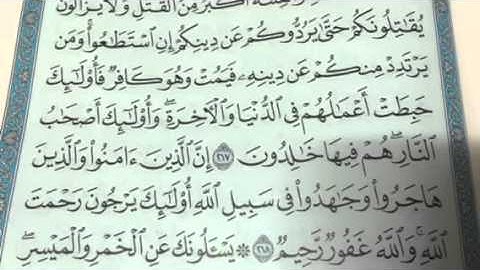 أَكْبَرُ مِنَ ٱلْقَتْلِ وَلَا يَزَالُونَ
يُقَٰتِلُونَكُمْ حَتَّىٰ يَرُدُّوكُمْ عَن دِينِكُمْ إِنِ ٱسْتَطَٰعُوا۟ وَمَن
يَرْتَدِدْ مِنكُمْ عَن دِينِهِۦ فَيَمُتْ وَهُوَ كَافِرٌ فَأُو۟لَٰٓئِكَ
حَبِطَتْ أَعْمَٰلُهُمْ فِى ٱلدُّنْيَا وَٱلْءَاخِرَةِ ۖ وَأُو۟لَٰٓئِكَ أَصْحَٰبُ
ٱلنَّارِ ۖ هُمْ فِيهَا خَٰلِدُونَ ٢١٧ إِنَّ ٱلَّذِينَ ءَامَنُوا۟ وَٱلَّذِينَ
هَاجَرُوا۟ وَجَٰهَدُوا۟ فِى سَبِيلِ ٱللَّهِ أُو۟لَٰٓئِكَ يَرْجُونَ رَحْمَتَ
ٱللَّهِ ۚ وَٱللَّهُ غَفُورٌ رَّحِيمٌ ٢١٨ ۞ يَسْـَٔلُونَكَ عَنِ ٱلْخَمْرِ وَٱلْمَيْسِرِ ۖ